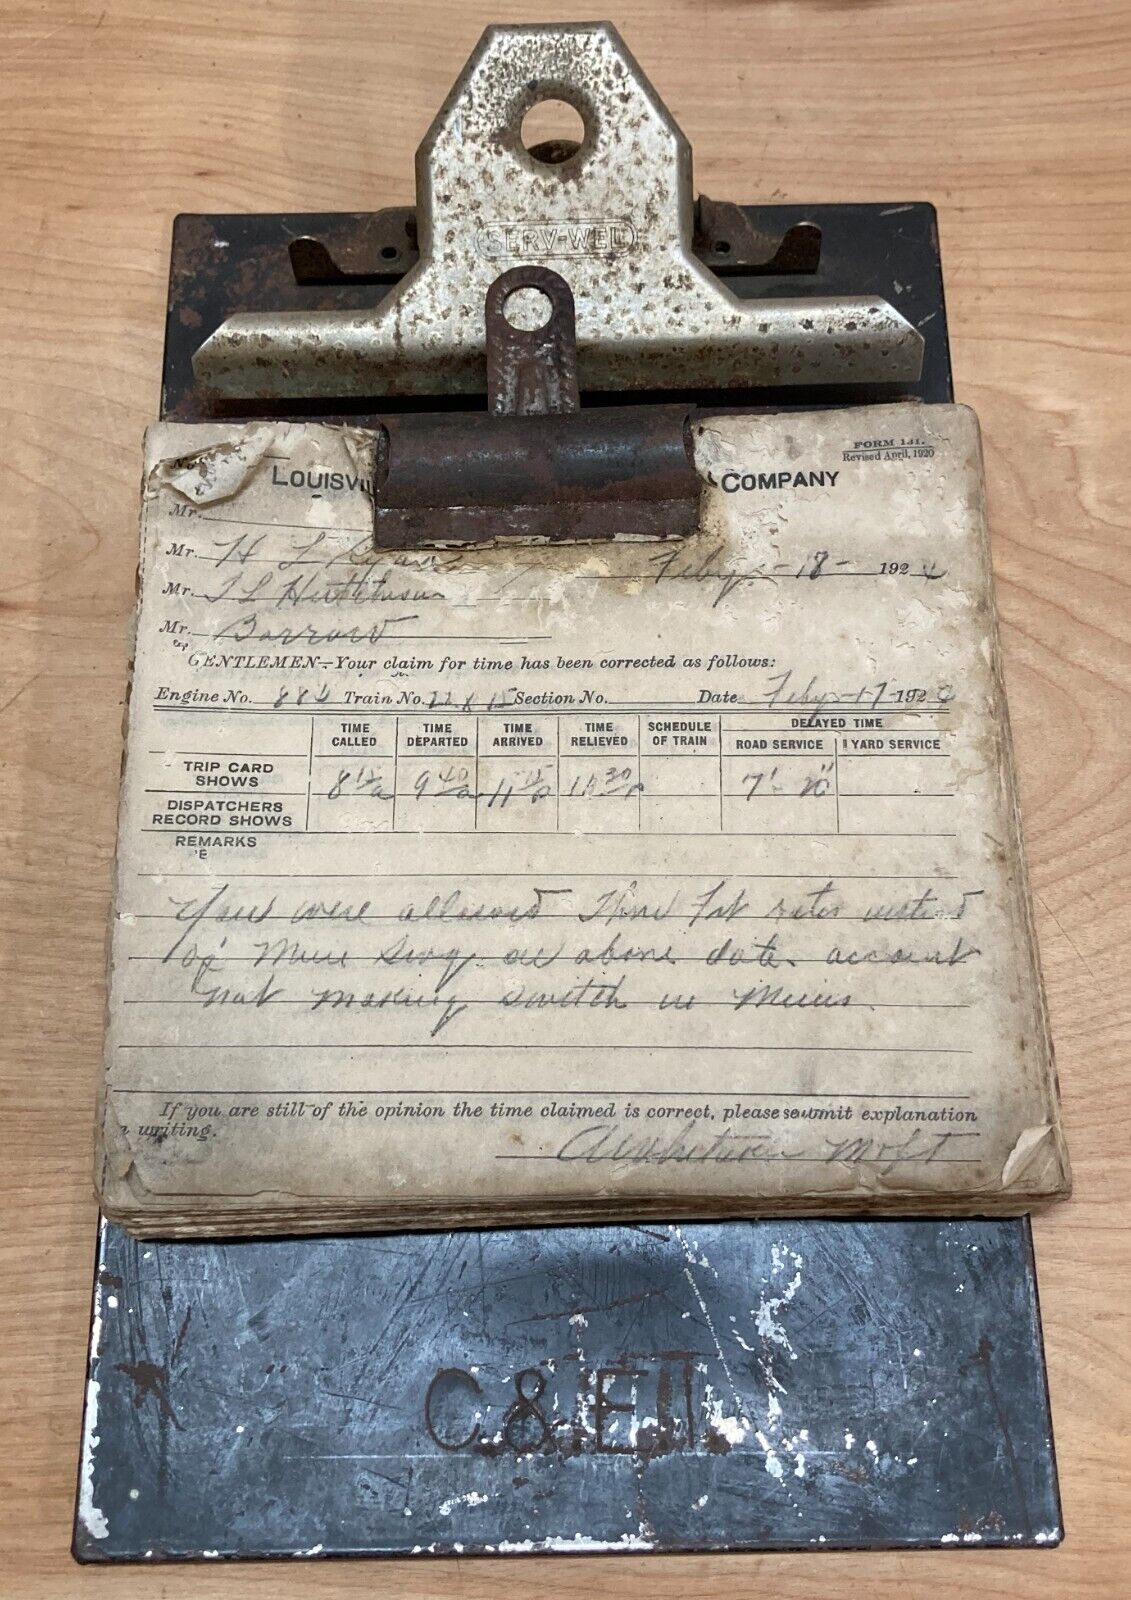 SERV-WEL
FORM 131.
Revised April, 1920
No.
LOUISVI COMPANY
Mr.
Mr. H L Ryan Feby - 18 - 192 4
Mr. T L Hutchison
Mr. Barrow
GENTLEMEN—Your claim for time has been corrected as follows:
Engine No. 884 Train No. 22 & 15 Section No. Date Feby - 17 - 192 4
TIME CALLED TIME DEPARTED TIME ARRIVED TIME RELIEVED SCHEDULE OF TRAIN DELAYED TIME
ROAD SERVICE YARD SERVICE
TRIP CARD SHOWS 8 15/a 9 40/a 11 15/p 11 30/p 7' 20"
DISPATCHERS RECORD SHOWS
REMARKS
You were allowed Thru Frt rates instead
of Mine Serv. on above date. account
not making switch in Mines.
If you are still of the opinion the time claimed is correct, please submit explanation
writing.
C. & E. I.